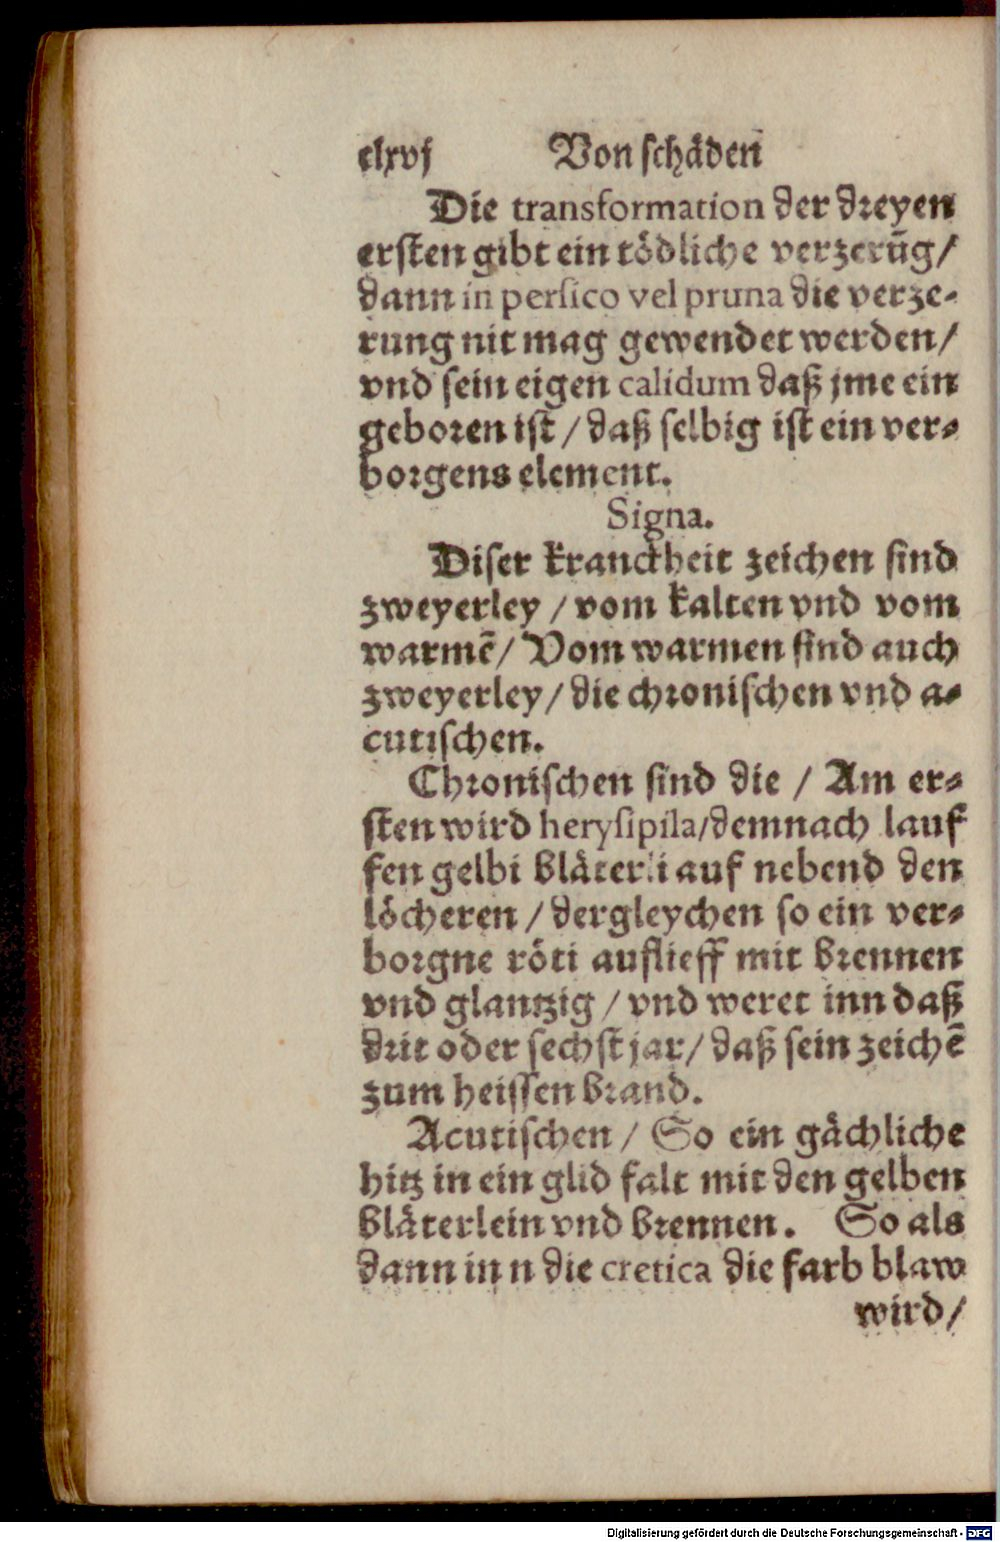 clxvj Von schäden
Die transformation der dreyen
ersten gibt ein tödliche verzerūg/
dann in persico vel pruna die verze-
rung nit mag gewendet werden/
vnd sein eigen calidum daß jme ein
geboren ist / daß selbig ist ein ver-
borgens element.
Signa.
Diser kranckheit zeichen sind
zweyerley / vom kalten vnd vom
warmē/ Vom warmen sind auch
zweyerley/ die chronischen vnd a-
cutischen.
Chronischen sind die / Am er-
sten wird herysipila/demnach lauf
fen gelbi bläterli auf nebend den
löcheren / dergleychen so ein ver-
borgne röti auflieff mit brennen
vnd glantzig / vnd weret inn daß
drit oder sechst jar/ daß sein zeichē
zum heissen brand.
Acutischen / So ein gächliche
hitz in ein glid falt mit den gelben
bläterlein vnd brennen. So als
dann in n die cretica die farb blaw
wird/
Digitalisierung gefördert durch die Deutsche Forschungsgemeinschaft - DFG